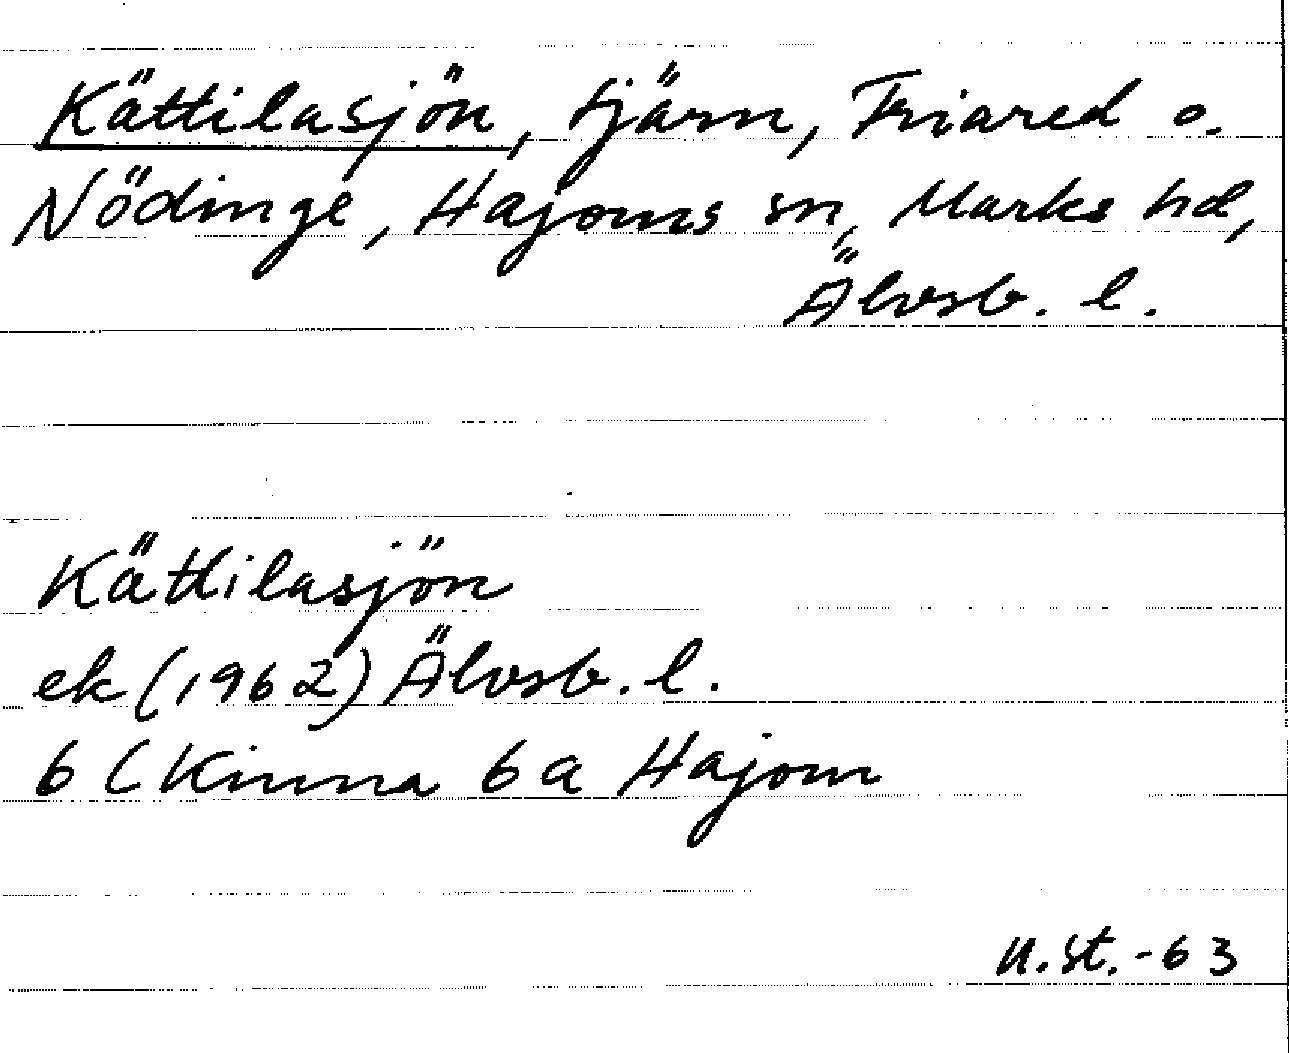 Kättilasjön, tjärn, Friared o.
Nödinge, Hajoms sn, Marks hd,
Älvsb. l.
Kättilasjön
ek (1962) Älvsb. l.
6 C Kinna 6a Hajom
U.St.-63